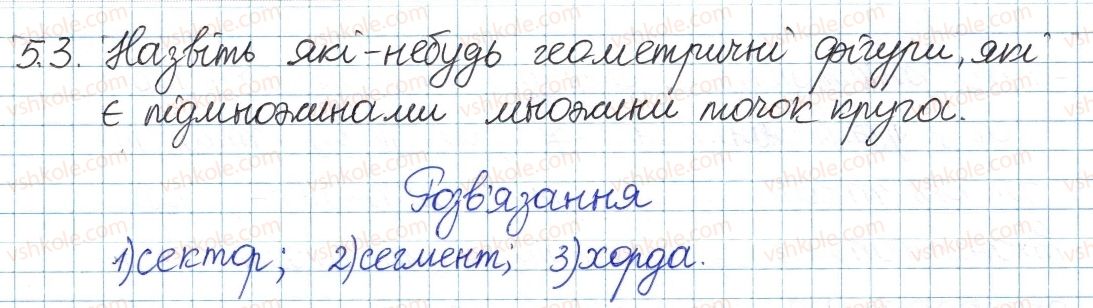 5.3. Назвіть які-небудь геометричні фігури, які
є підмножинами множини точок круга.
Розв'язання
1) сектор; 2) сегмент; 3) хорда.